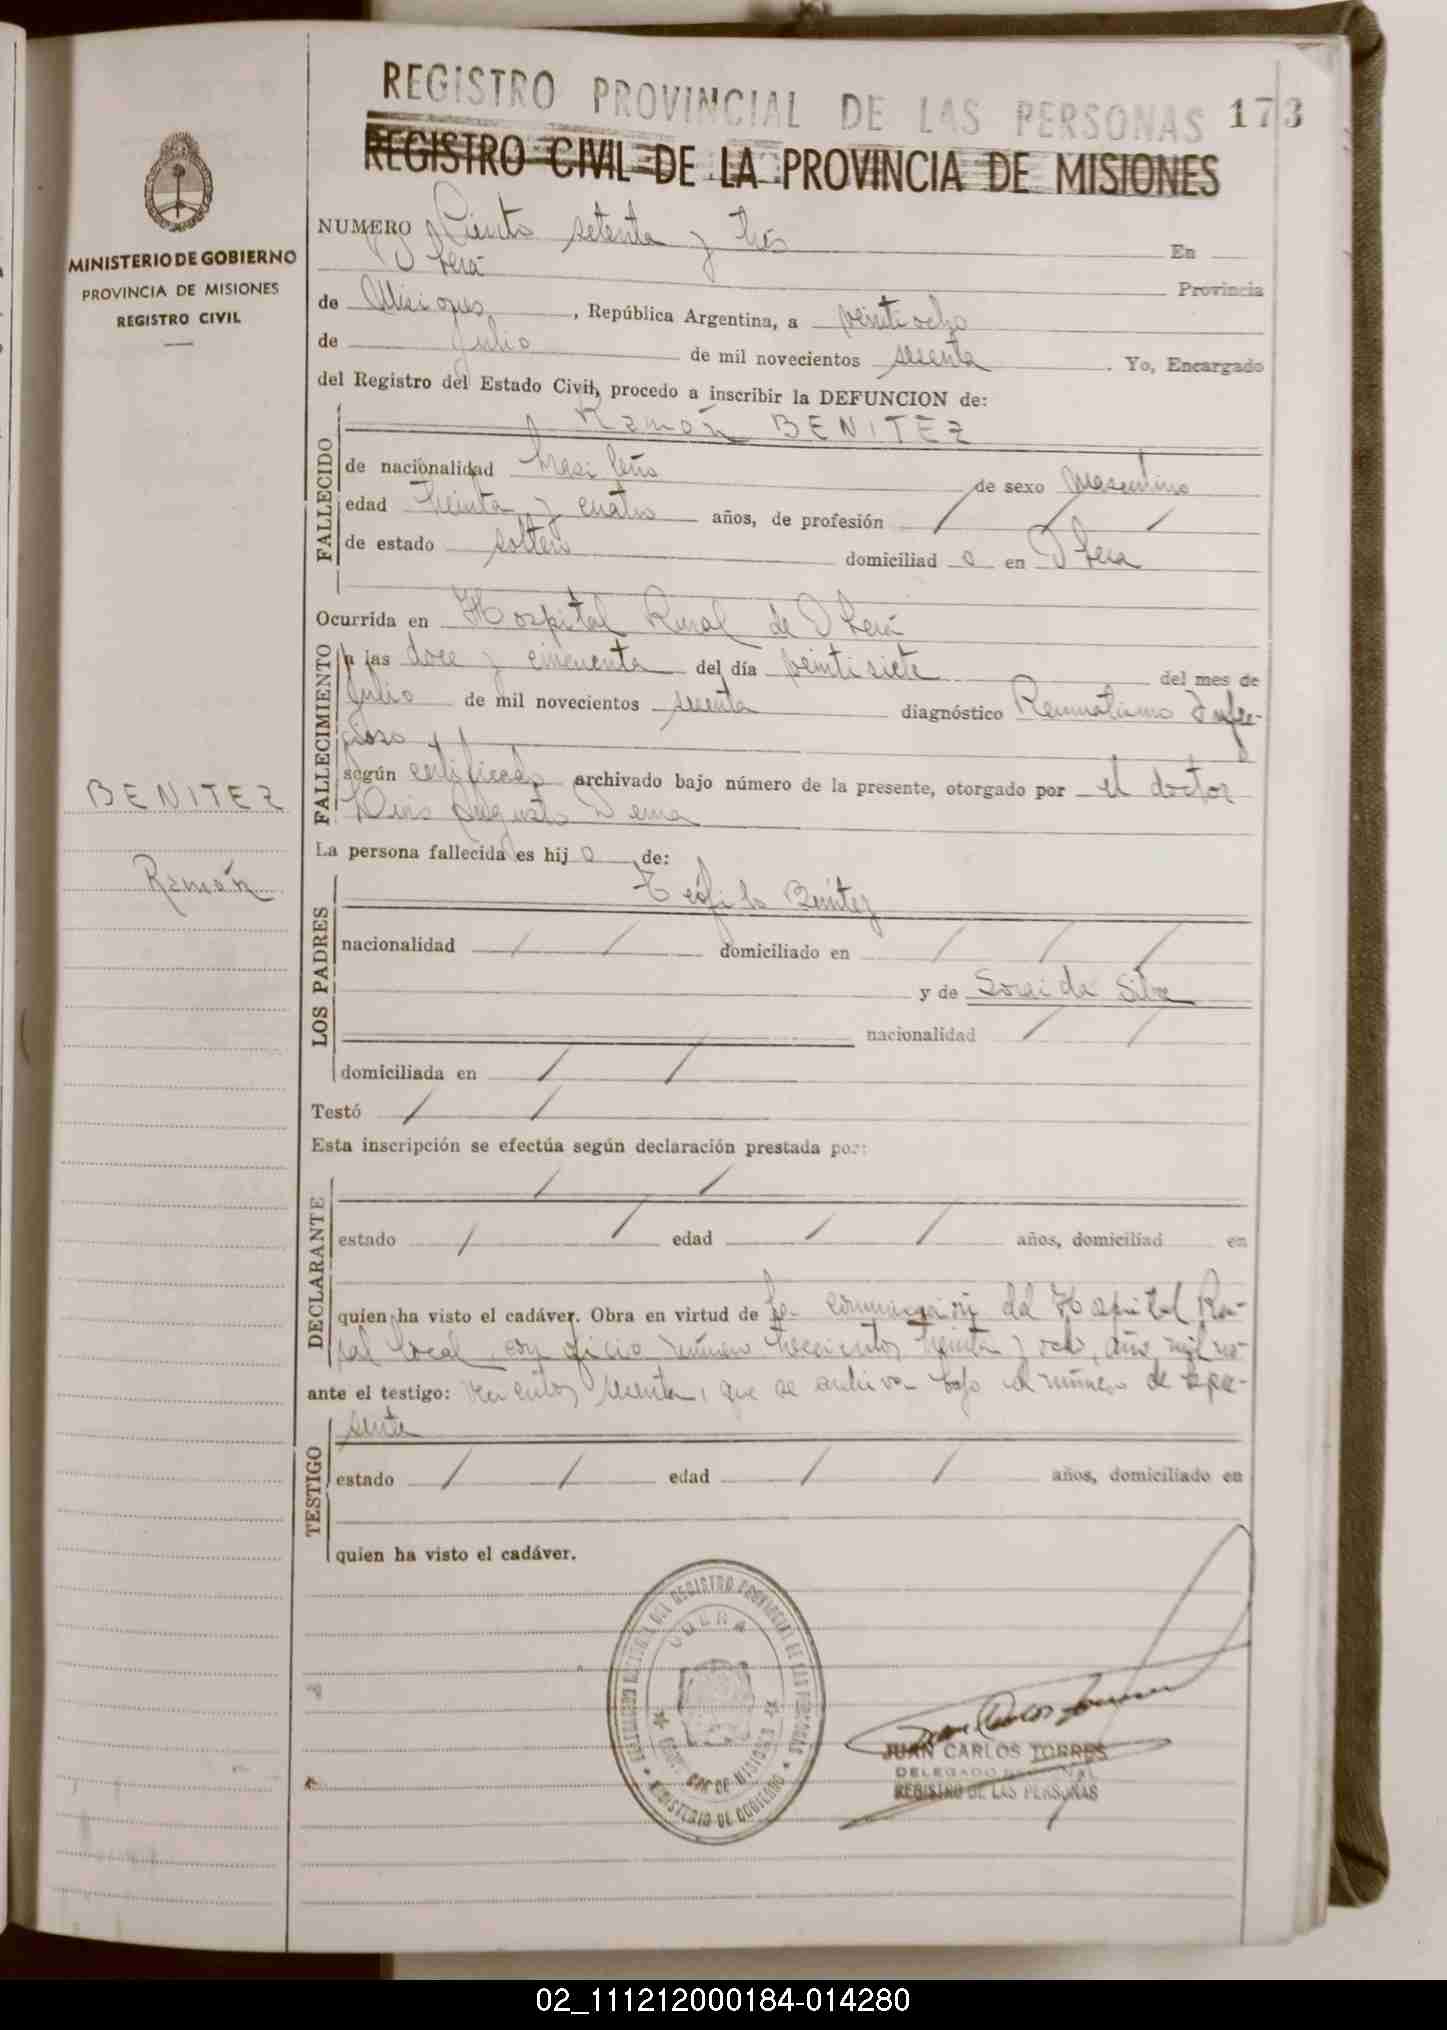 REGISTRO PROVINCIAL DE LAS PERSONAS 173
REGISTRO CIVIL DE LA PROVINCIA DE MISIONES
MINISTERIO DE GOBIERNO
PROVINCIA DE MISIONES
REGISTRO CIVIL
NUMERO Ciento setenta y tres En
Oberá Provincia
de Misiones, República Argentina, a veintiocho
de julio de mil novecientos sesenta. Yo, Encargado
del Registro del Estado Civil, procedo a inscribir la DEFUNCION de:
FALLECIDO
Ramón BENITEZ
de nacionalidad brasileño de sexo masculino
edad treinta y cuatro años, de profesión / / /
de estado soltero domiciliad o en Oberá
Ocurrida en Hospital Rural de Oberá
FALLECIMIENTO
a las doce y cincuenta del día veintisiete del mes de
julio de mil novecientos sesenta diagnóstico Reumatismo Infec-
cioso
según certificado archivado bajo número de la presente, otorgado por el doctor
Luis Augusto
BENITEZ
Ramón
La persona fallecida es hij o de:
LOS PADRES
Teófilo Benítez
nacionalidad / / domiciliado en / / /
y de da Silva
nacionalidad / /
domiciliada en / /
Testó / /
Esta inscripción se efectúa según declaración prestada por:
DECLARANTE
/ /
estado / / edad / / años, domiciliad en
quien ha visto el cadáver. Obra en virtud de la comunicación del Hospital Ru-
ral local, con oficio número trescientos treinta y ocho, año mil no-
ante el testigo: vecientos sesenta, que se archiva bajo el número de la pre-
sente
TESTIGO
estado / / edad / / años, domiciliado en
quien ha visto el cadáver.
REGISTRO PROVINCIAL DE LAS PERSONAS
OBERA
MINISTERIO DE GOBIERNO
JUAN CARLOS TORRES
DELEGADO
REGISTRO DE LAS PERSONAS
02_111212000184-014280